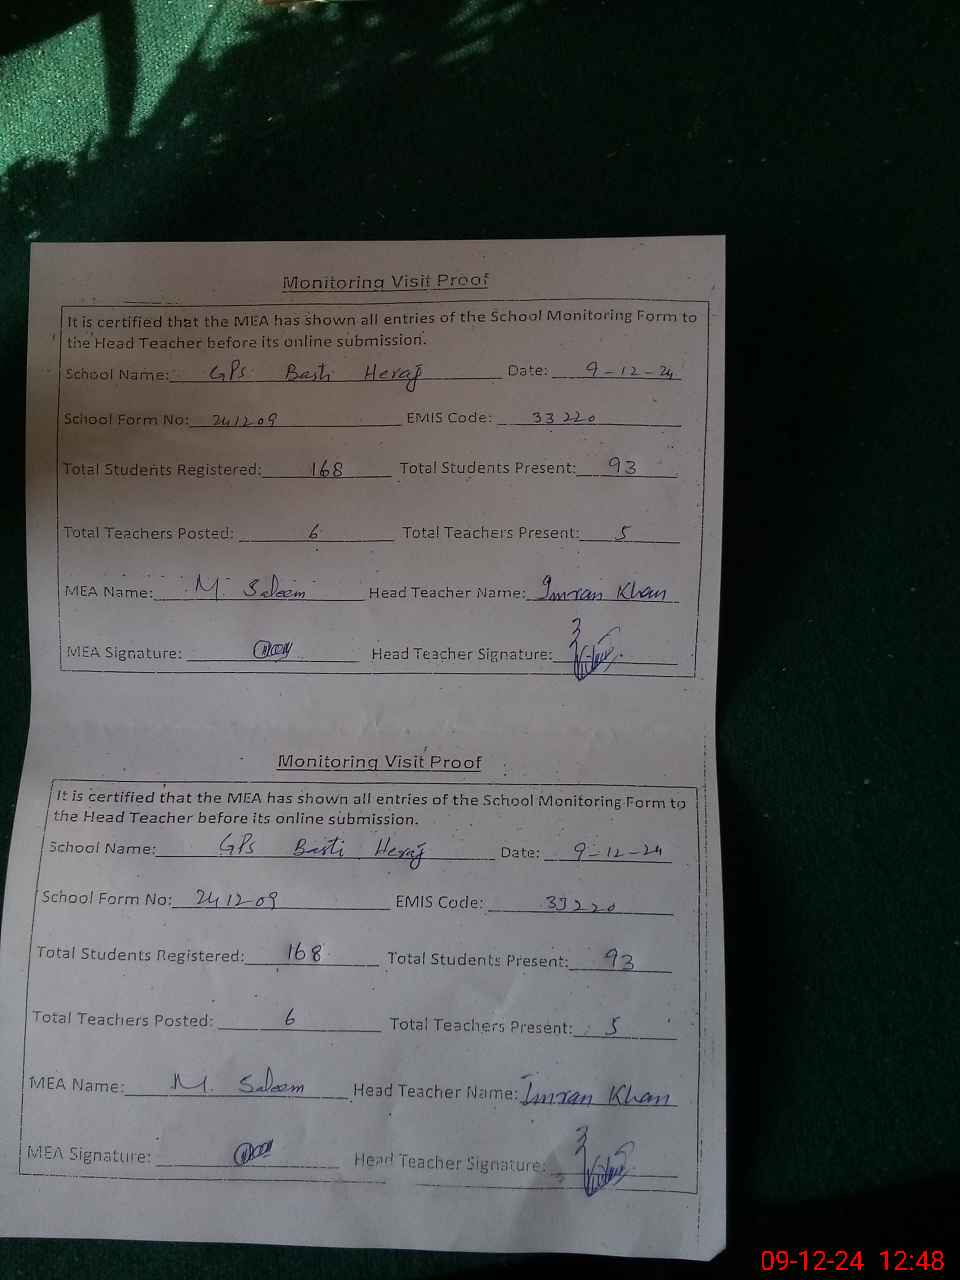 Monitoring Visit Proof
It is certified that the MEA has shown all entries of the School Monitoring Form to
the Head Teacher before its online submission.
School Name: GPS Basti Heraj Date: 9-12-24
School Form No: 241209 EMIS Code: 33220
Total Students Registered: 168 Total Students Present: 93
Total Teachers Posted: 6 Total Teachers Present: 5
MEA Name: M. Saleem Head Teacher Name: Imran Khan
MEA Signature: Head Teacher Signature:
Monitoring Visit Proof
It is certified that the MEA has shown all entries of the School Monitoring Form to
the Head Teacher before its online submission.
School Name: GPS Basti Heraj Date: 9-12-24
School Form No: 241209 EMIS Code: 33220
Total Students Registered: 168 Total Students Present: 93
Total Teachers Posted: 6 Total Teachers Present: 5
MEA Name: M. Saleem Head Teacher Name: Imran Khan
MEA Signature: Head Teacher Signature:
09-12-24 12:48